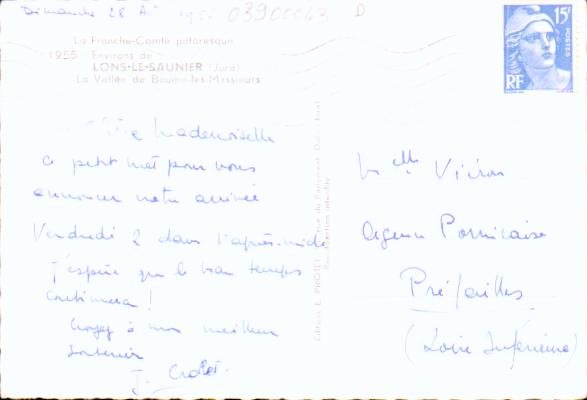 Dimanche 28 A. 1955 03900043 D
La Franche-Comté pittoresque
1955 Environs de
LONS-LE-SAUNIER (Jura)
La Vallée de Baume-les-Messieurs
15F
POSTES
RF
Chère Mademoiselle
Ce petit mot pour vous
annoncer notre arrivée
Vendredi 2 dans l'après-midi
J'espère que le beau temps
continuera !
Croyez à mon meilleur
souvenir
J.
Melle
Agence Pornicaise
Préfailles
(Loire Inférieure)
Editions E. PROTET Dole (Jura)
Reproduction interdite